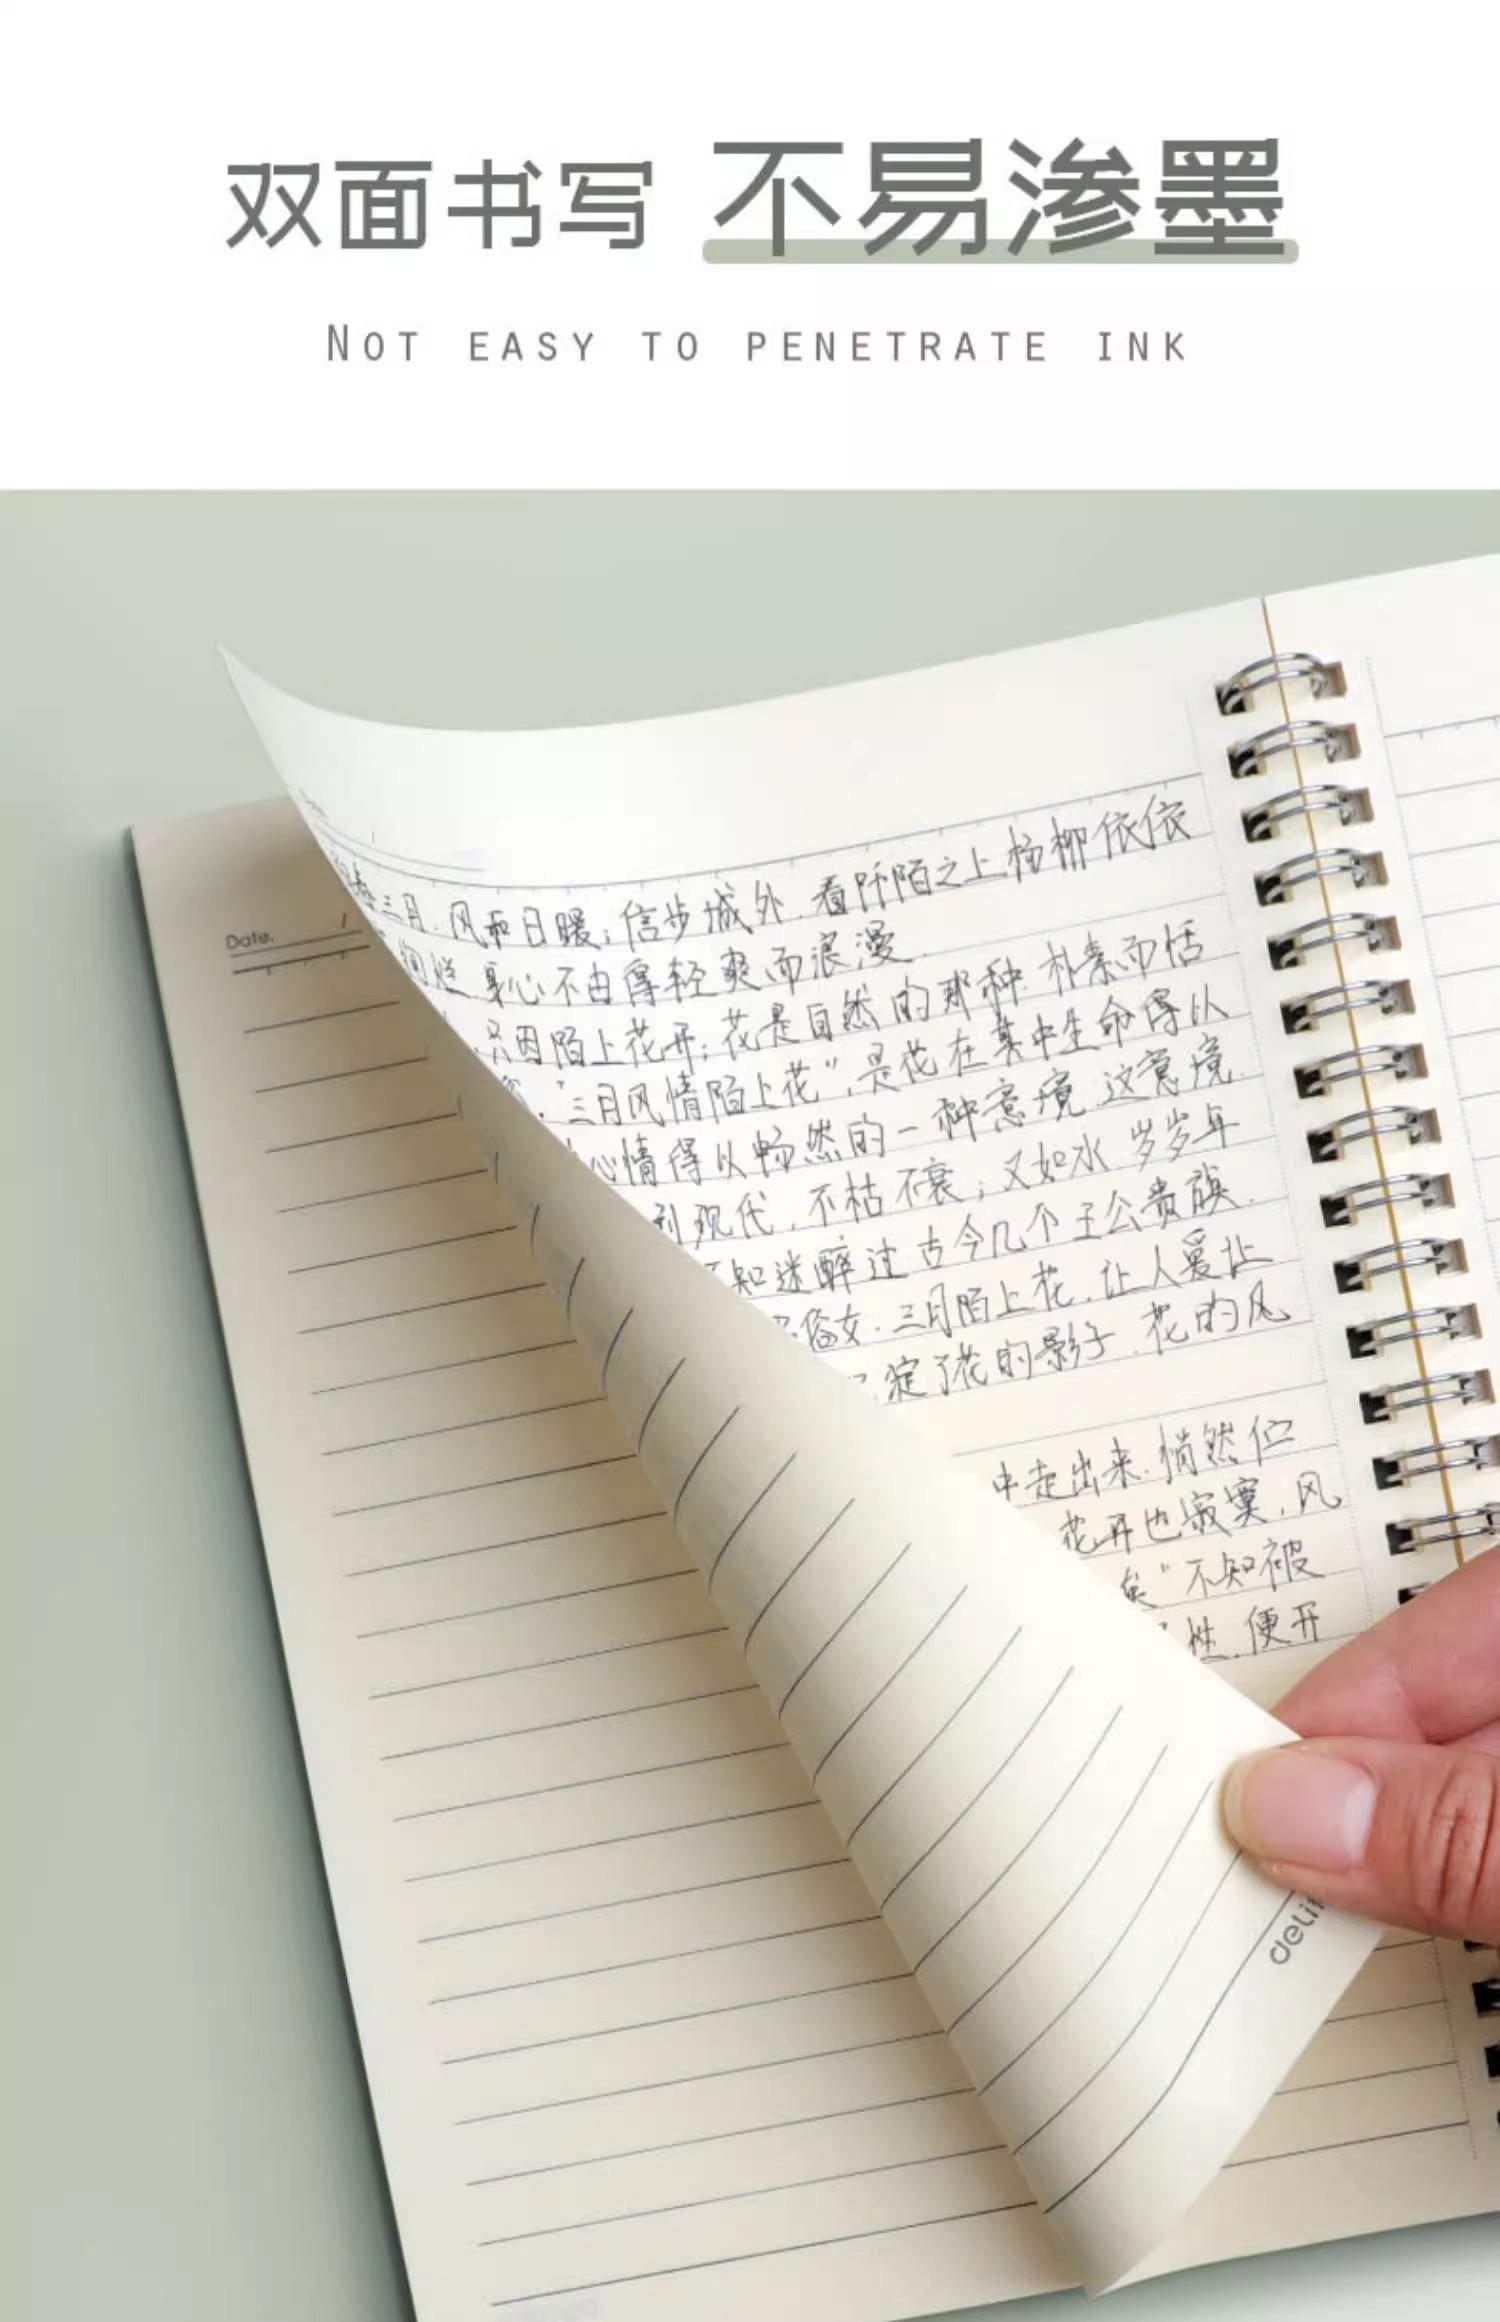 双面书写 不易渗墨
NOT EASY TO PENETRATE INK
Date.
三月.风和日暖;信步城外.看阡陌之上杨柳依依
烂.身心不由得轻爽而浪漫.
只因陌上花开;花是自然的那种.朴素而恬
"三月风情陌上花",是花在其中生命得以
心情得以畅然的一种意境.这意境
到现代,不枯不衰;又如水 岁岁年
知迷醉过古今几个王公贵族.
俗女.三月陌上花,让人爱让
淀了花的影子.花的风
中走出来.悄然伫
花开也寂寞,风
矣"不知被
性.便开
deli